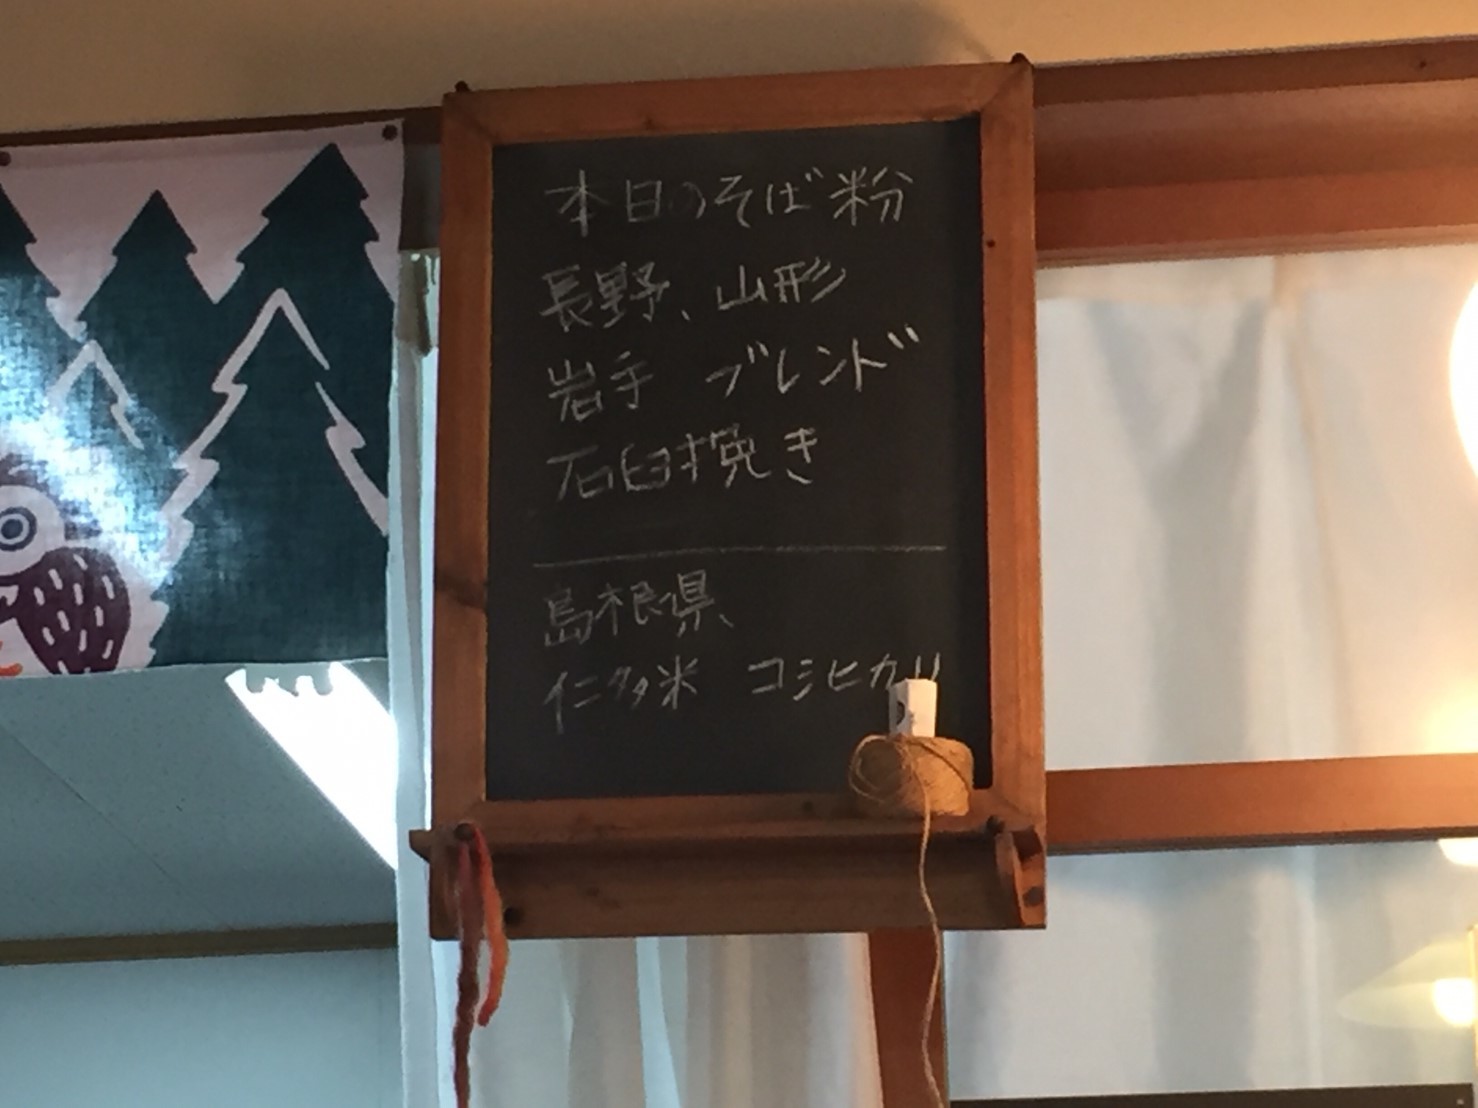 本日のそば粉
長野、山形
岩手 ブレンド
石臼挽き
島根県
仁多米 コシヒカリ